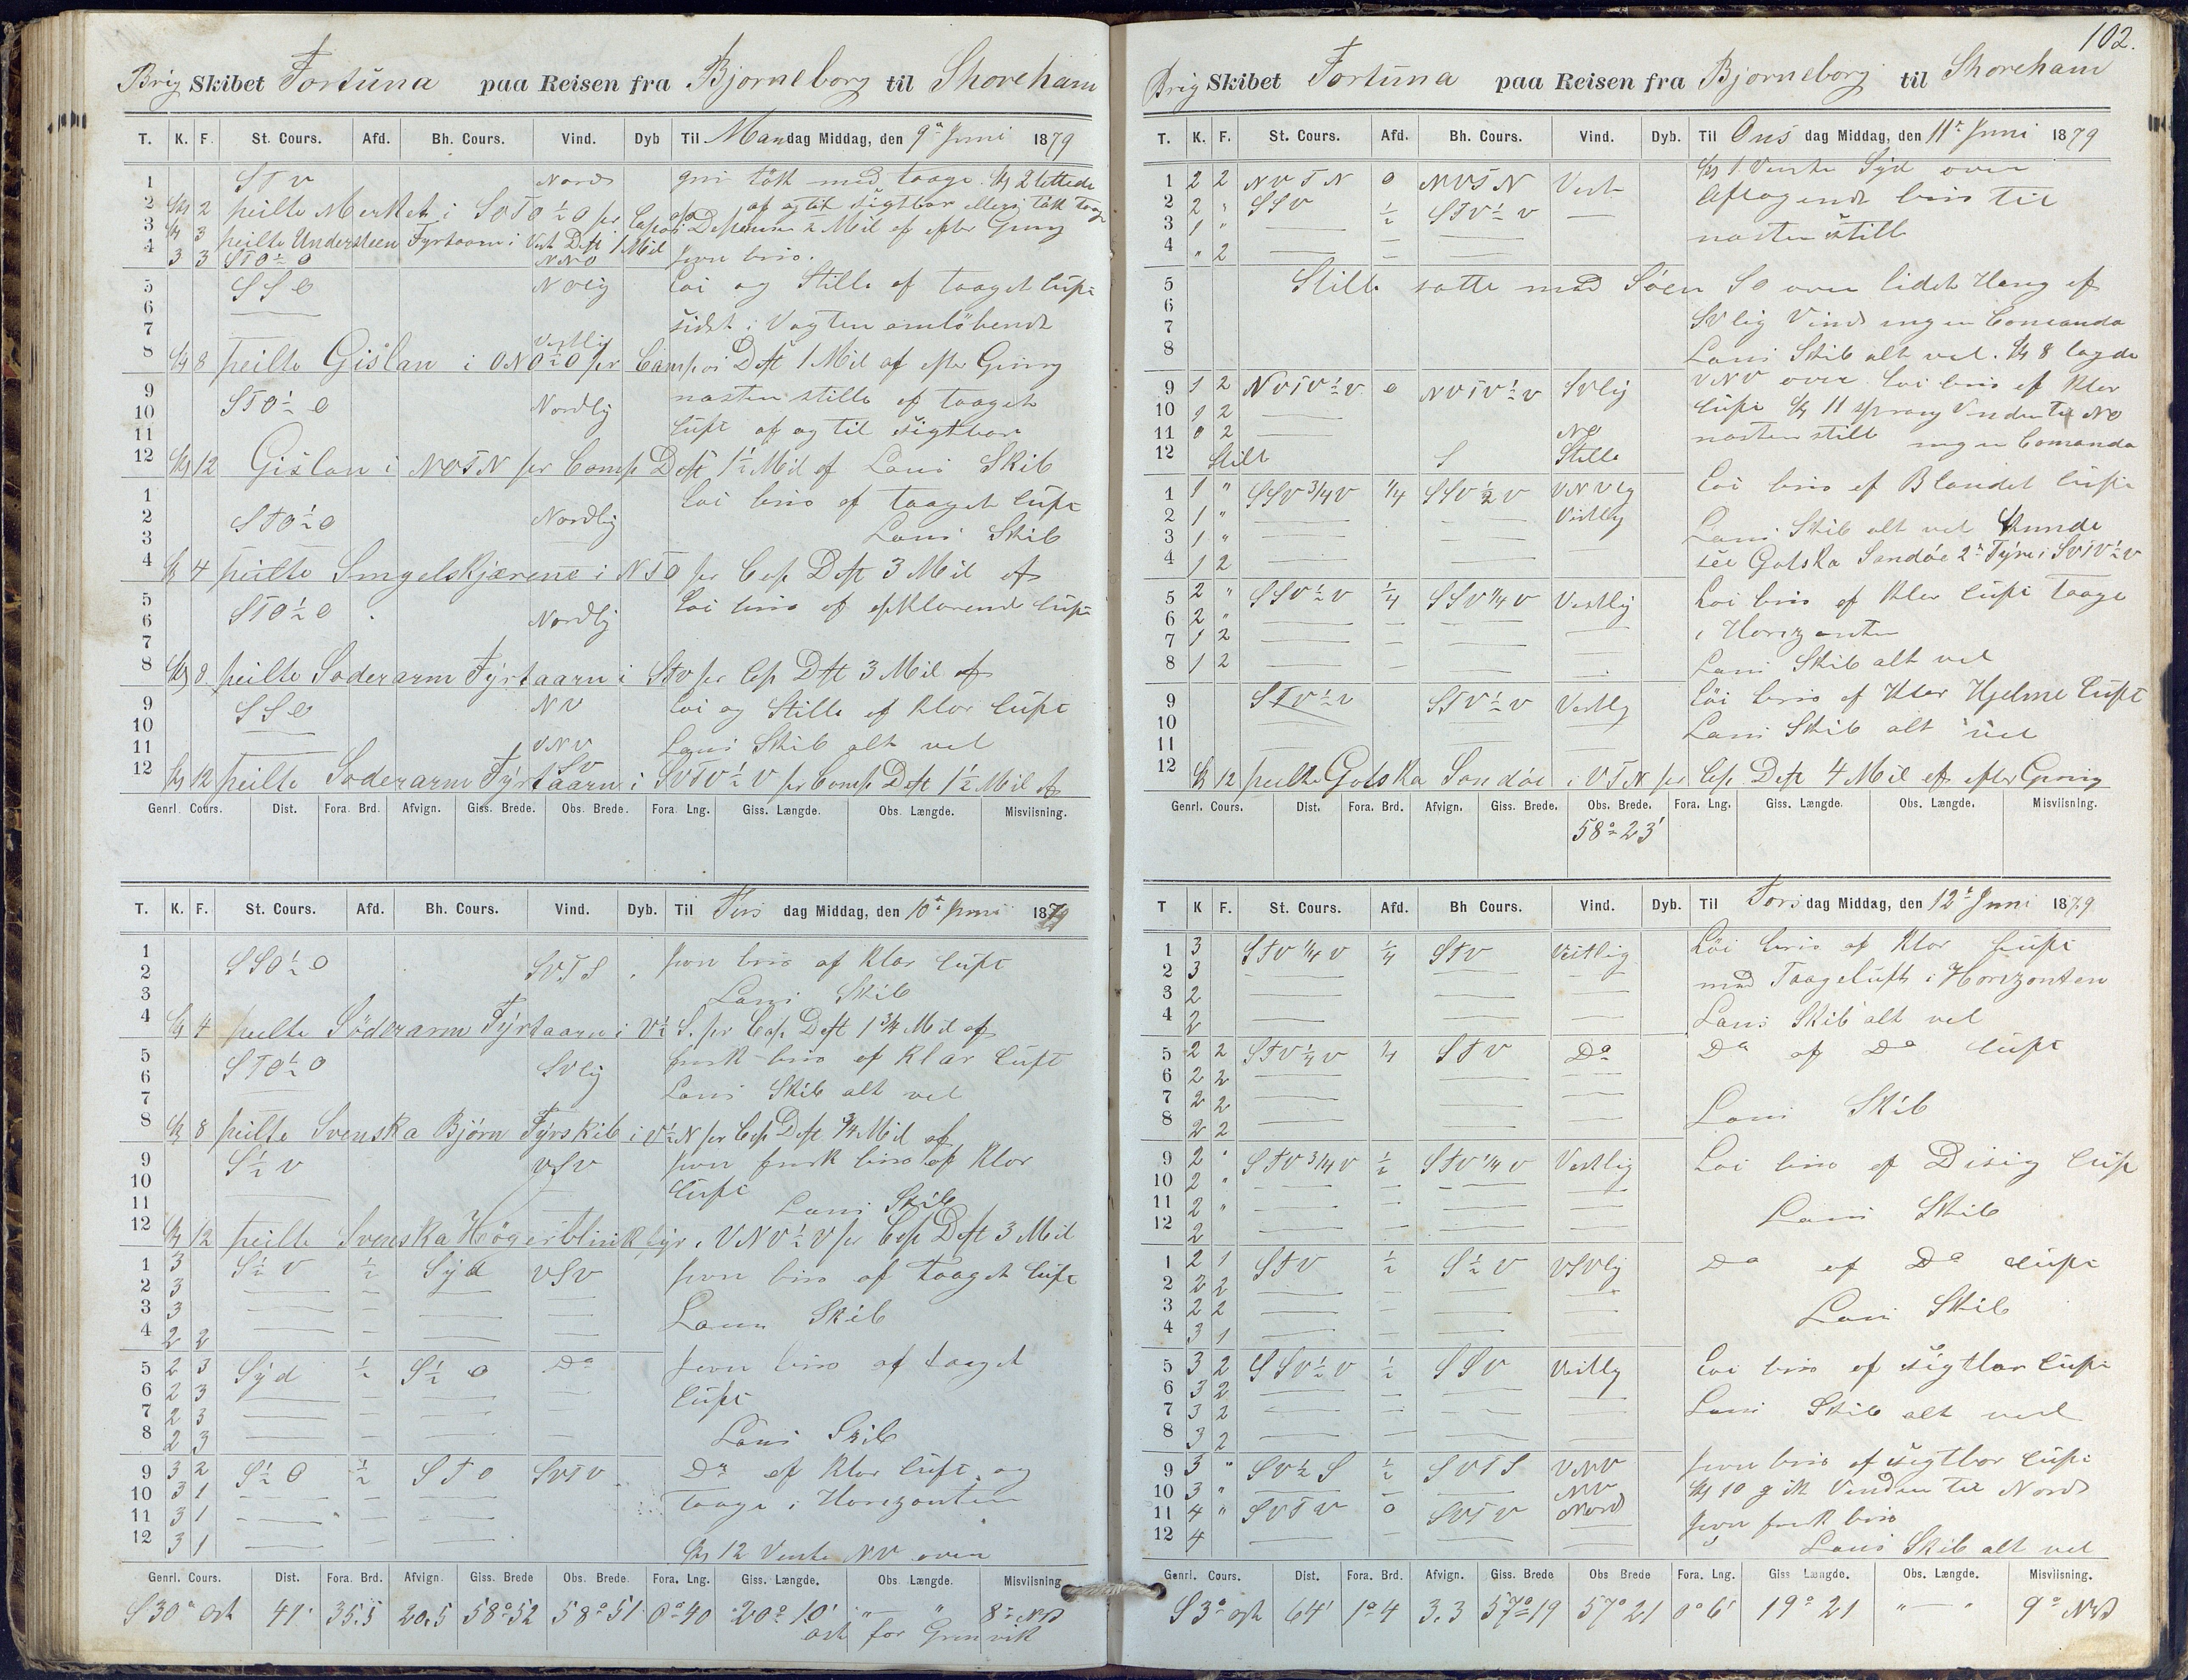 Brig Skibet Fortuna paa Reisen fra Bjorneborg til Shoreham
T. K. F. St. Cours. Afd. Bh. Cours. Vind. Dyb Til Mandag Middag, den 9de Juni 1879
1 STV Nord
2 Kl 2 peilte Merket i
3 Kl 3 peilte Understeen Fyrtaarn i Vest Dest 1 Mil
4 3 3 STO½O NNO jevn bris.
5 SSO NOlig Loi og Stille af taaget Luft
6 sidst i Vagten omlöbende
7 Vestlig
8 Kl 8 peilte Gislan i ONO½O pr Comp Dest 1 Mil af efter Gisning
9 STO½O Nordlig nasten stille af taaget
10 Luft af og til sigtbar
11
12 Kl 12 Gislan i NOTN pr Comp Dest 1½ Mil af Lans Skib
1 Loi bris af taaget Luft
2 STO½O Nordlig
3 Lans Skib
4 Kl 4 peilte Singelskjærene i NTO pr Cop Dest 3 Mil af
5 STO½O Nordlig Loi bris af opklarende Luft
6
7
8 Kl 8 peilte Soderarm Fyrtaarn i STV pr Cop Dst 3 Mil af
9 SSO NV Loi og Stille af Klar Luft
10
11 VNV Lans Skib alt vel
SV
12 Kl 12 peilte Soderarm Fyrtaarn i SVTV½V pr Comp Dest 1½ Mil af
Genrl. Cours. Dist. Fora. Brd. Afvign. Giss. Brede. Obs. Brede. Fora. Lng. Giss. Længde. Obs. Længde. Misviisning.
T. K. F. St. Cours. Afd. Bh. Cours. Vind. Dyb. Til Tirs dag Middag, den 10de Juni 1879
1 SSO½O SVTS jevn bris af Klar Luft
2
3 Lans Skib
4 Kl 4 peilte Söderarm Fyrtaarn i V½S. pr Cop Dest 1¾ Mil af
5 STO½O SVlig frisk bris af Klar Luft
6 Lans Skib alt vel
7
8 Kl 8 peilte Svenska Björn Fyrskib i V½N pr Cop Dest ¾ Mil af
9 S½V VSV jevn frisk bris af Klar
10 Luft
11 Lans Skib
12 Kl 12 peilte Svenska Högerblinkfyr i VNV½V pr Cop Dest 3 Mil
1 3 S½V ½ Syd VSV jevn bris af taaget Luft
2 3
3 3 Lans Skib
4 2 2
5 2 3 Syd ½ S½O Do jevn bris af taaget
6 2 3 Luft
7 2 3
8 2 3 Lans Skib
9 3 2 S½O ½ STO SVTV Do af Klar Luft og
10 3 1 Taage i Horizonten
11 3 1
12 3 1 Kl 12 Vendte NV over
Genrl. Cours. Dist. Fora. Brd. Afvign. Giss. Brede Obs. Brede. Fora. Lng. Giss. Længde. Obs Længde. Misviisning
S 30° Ost 41' 35.5 20.5 58°52 58°51 0°40 20° 10' " — " 8° NV
Ost for Grinvik
102.
Brig Skibet Fortuna paa Reisen fra Bjorneborg til Shoreham
T. K. F. St. Cours. Afd. Bh. Cours. Vind. Dyb. Til Ons dag Middag, den 11te Juni 1879
Kl 1 Vendte Syd over
1 2 2 NVTN 0 NVTN Vest Aftagende bris til
2 2 " SSV ½ STV½V —
3 1 " nasten still
4 " 2
5 Stille satte med Söen SO over lidet Hang af
6 SVlig Vind ingen Comanda
7
8 Lans Skib alt vel. Kl 8 lagde
9 1 2 NVTV½V 0 NVTV½V SVlig VNV over Loi bris af Klar
10 1 2 Luft Kl 11 sprang Vinden til NO
11 0 2 NO nasten still ingen Comanda
12 Still S Stille
1 1 " SSV¾V ¼ SSV½V VNVlig Loi bris af Blandet Luft
2 1 " Vestlig
3 1 " Lans Skib alt vel Kunde
4 1 2 see Gotska Sandöe 2de Fyre i SVTV½V
5 2 " SSV½V ¼ SSV¼V Vestlig Loi bris af Klar Luft Taage
6 2 " i Horizonten
7 1 2
8 1 2 Lans Skib alt vel
9 STV½V STV½V Vestlig Löi bris af Klar Hjelme Luft
10 Lans Skib alt vel
11
12 Kl 12 peilte Gotska Sandöe i VTN pr Cop Dest 4 Mil af efter Gisning
Genrl. Cours. Dist. Fora. Brd. Afvign. Giss. Brede. Obs. Brede. Fora. Lng. Giss. Længde. Obs. Længde. Misviisning.
58° 23'
T K F. St. Cours. Afd. Bh Cours. Vind. Dyb. Til Tors dag Middag, den 12te Juni 1879
1 3 STV¼V ¼ STV Vestlig Löi bris af Klar Luft
2 3 med Taageluft i Horizonten
3 2
4 2 Lans Skib alt vel
5 2 2 STV¼V ¼ STV Do Do af Do Luft
6 2 2
7 2 2 Lans Skib
8 2 2
9 2 " STV¾V ½ STV¼V Vestlig Loi bris af Disig Luft
10 2 "
11 2 " Lans Skib
12 2
1 2 1 STV ½ S½V VSVlig Do af Do Luft
2 2 2
3 2 2 Lans Skib
4 3 1
5 3 2 SSV½V ½ SSV Vestlig Loi bris af sigtbar Luft
6 3 2
7 3 2 Lans Skib alt vel
8 3 2
9 3 " SV½S ½ SVTS VNV jevn bris af sigtbar Luft
10 3 " NV Kl 10 gik Vinden til Nord
11 4 " SVTV 0 SVTV Nord jevn frisk bris
12 4 Lans Skib alt vel
Genrl. Cours. Dist. Fora. Brd. Afvign. Giss. Brede Obs Brede Fora. Lng. Giss Længde. Obs. Længde. Misviisning.
S 3° Ost 64' 1°4 3.3 57°19 57°21 0°6' 19°21 " — " 9° NV